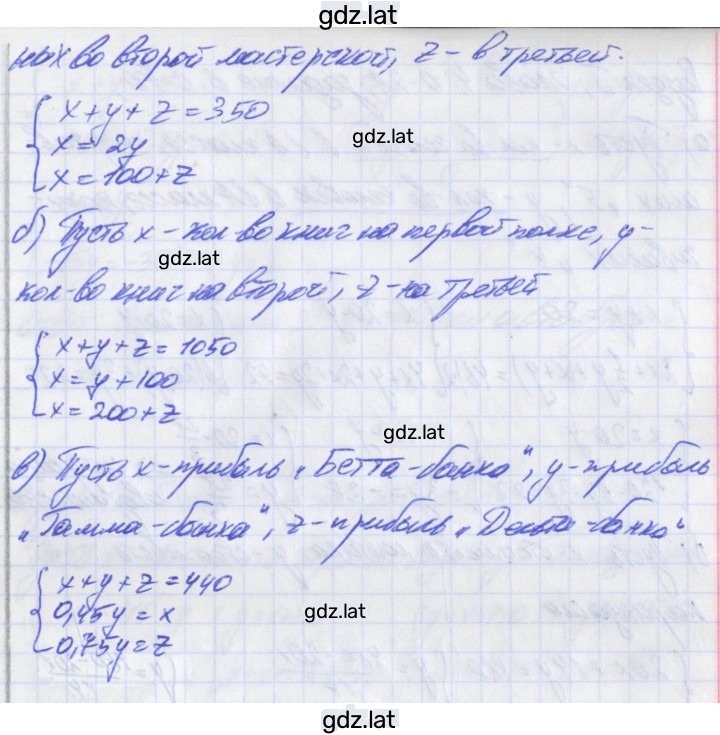 gdz.lat
ных во второй мастерской, z - в третьей.
x + y + z = 350
gdz.lat
x = 2y
x = 100 + z
б) Пусть x - кол-во книг на первой полке, y -
gdz.lat
кол-во книг на второй, z - на третьей
x + y + z = 1050
x = y + 100
x = 200 + z
gdz.lat
в) Пусть x - прибыль „Бетта-банка“, y - прибыль
„Гамма-банка“, z - прибыль „Дельта-банка“
x + y + z = 440
0,45y = x
gdz.lat
0,75y = z
gdz.lat